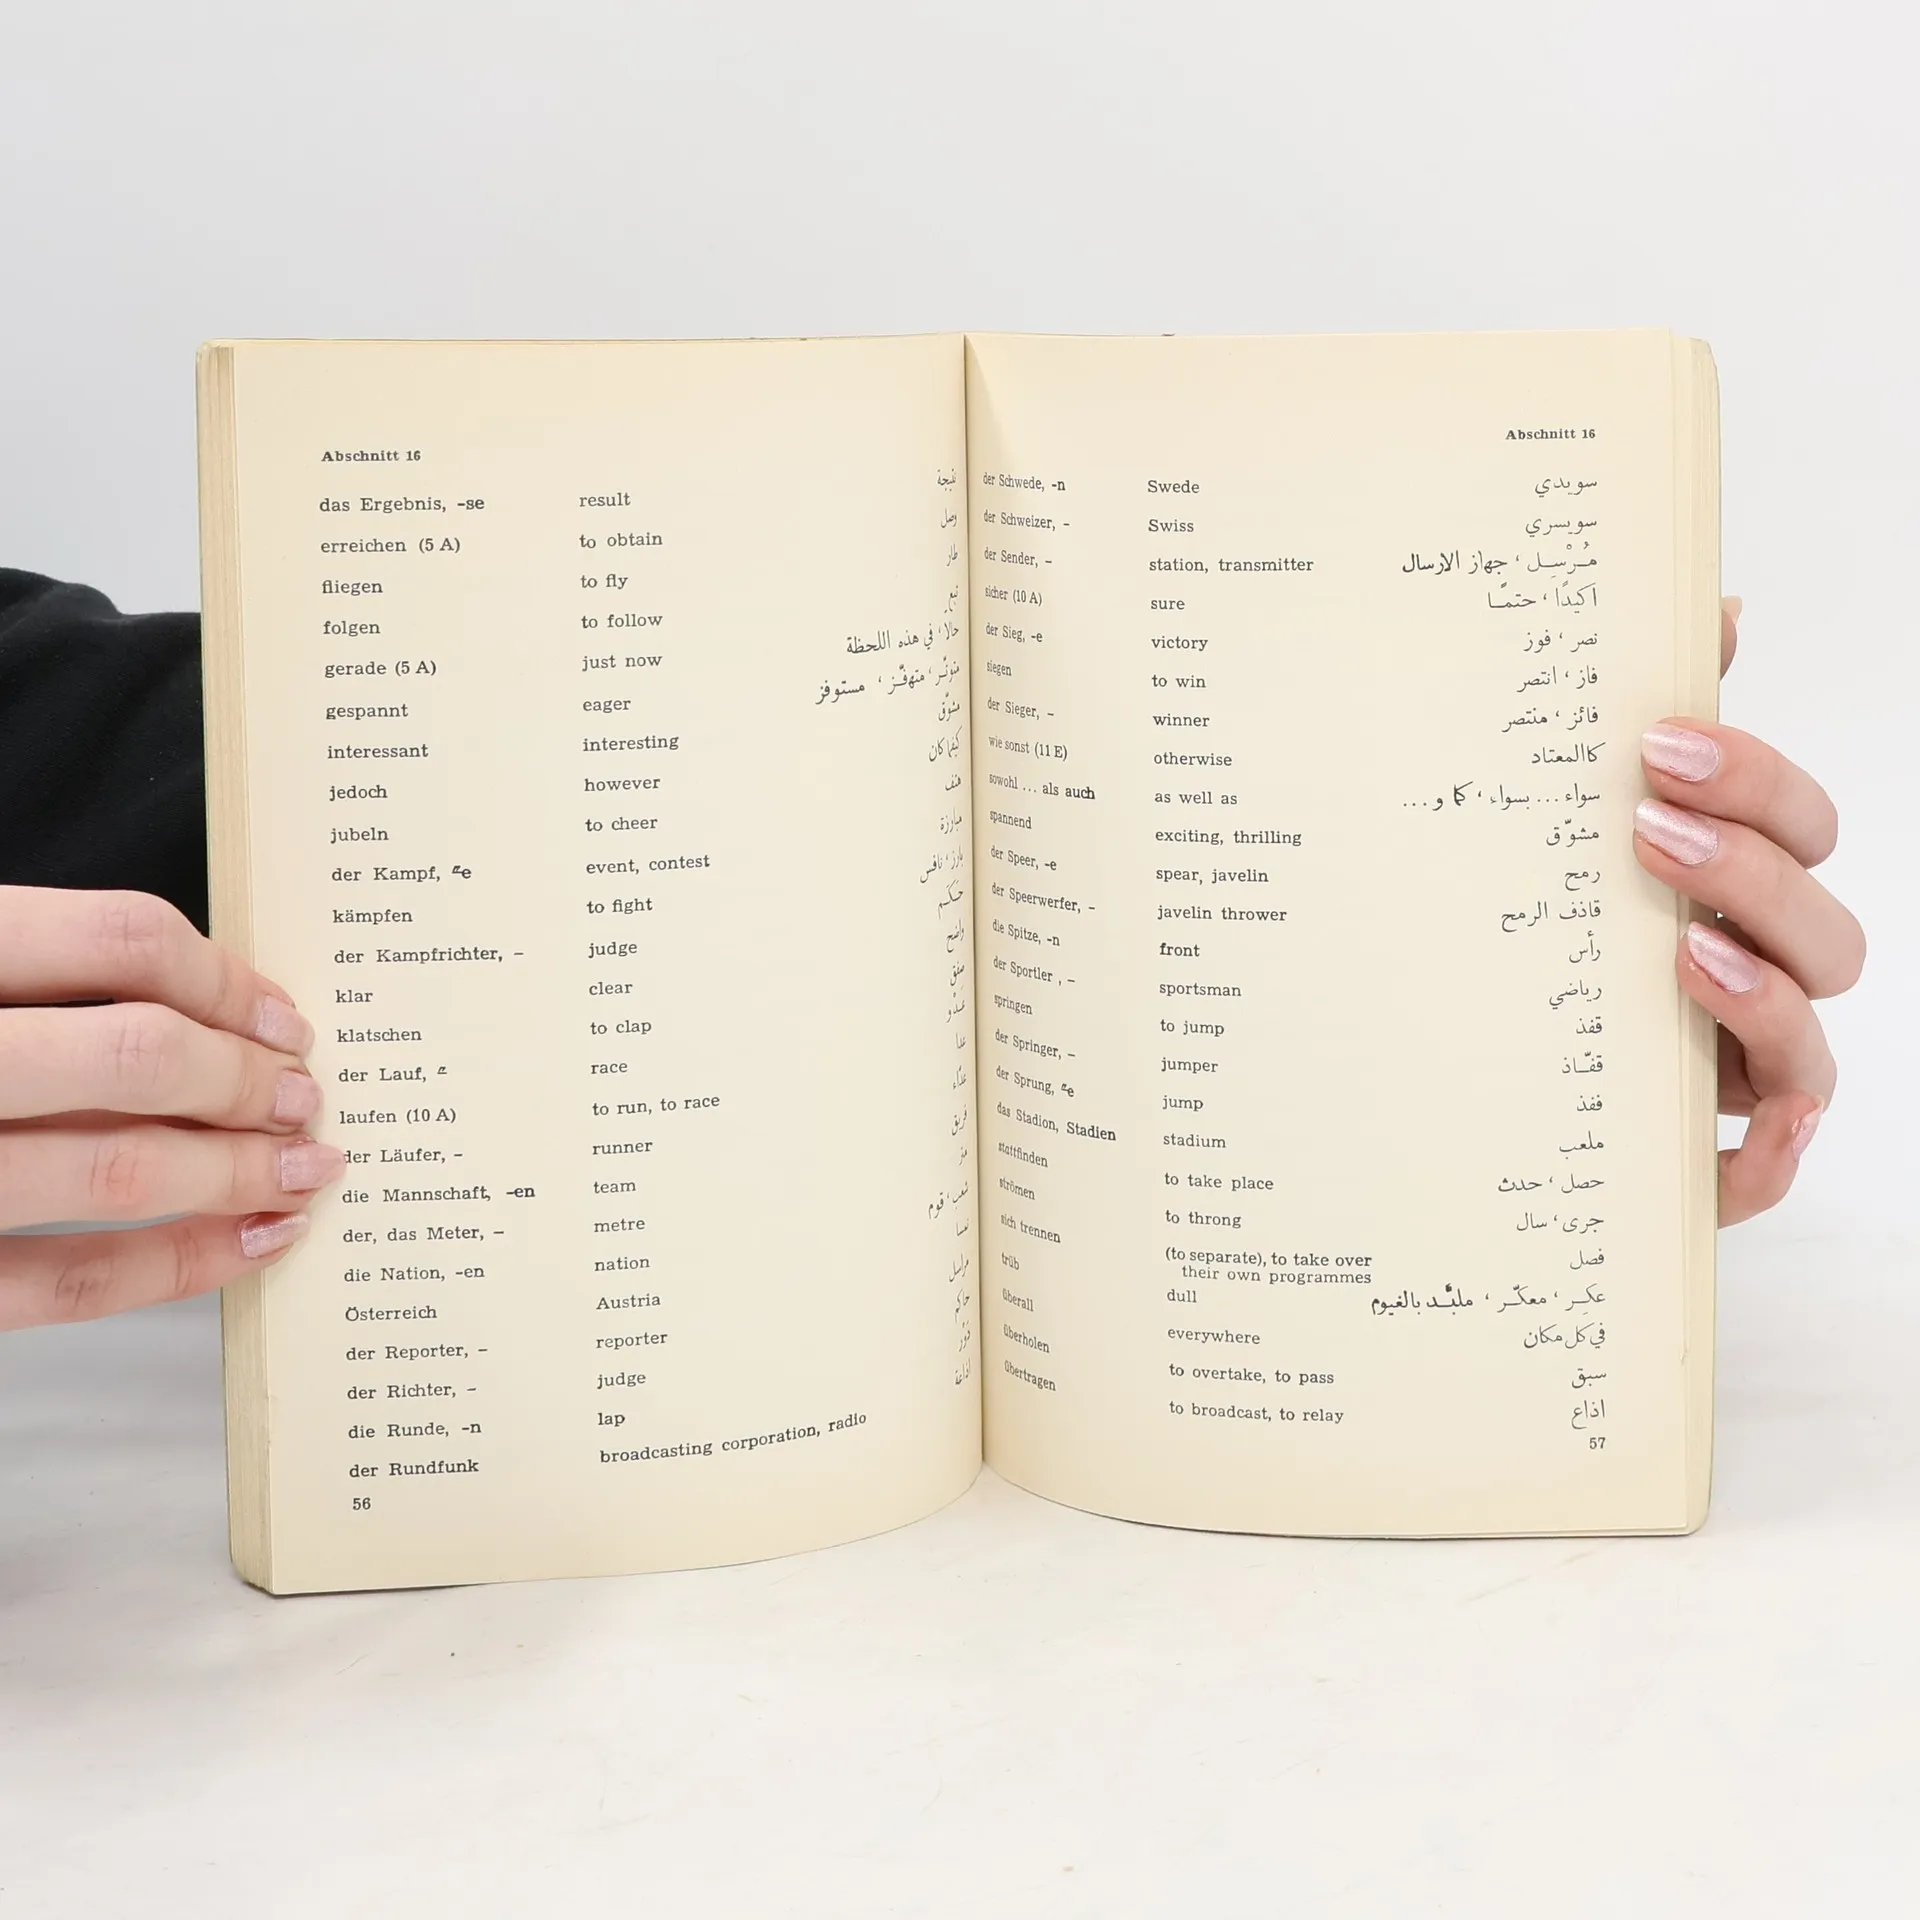 Abschnitt 16
das Ergebnis, -se result نتيجة
erreichen (5 A) to obtain وصل
fliegen to fly طار
folgen to follow تبع
gerade (5 A) just now حالا، في هذه اللحظة
gespannt eager متوتّر، متهفّز، مستوفز
interessant interesting مشوّق
jedoch however كيفما كان
jubeln to cheer هتف
der Kampf, ⸚e event, contest مبارزة
kämpfen to fight بارز، نافس
der Kampfrichter, – judge حَكَم
klar clear واضح
klatschen to clap صفق
der Lauf, ⸚e race عَدْو
laufen (10 A) to run, to race عدا
der Läufer, – runner عدّاء
die Mannschaft, -en team فريق
der, das Meter, – metre متر
die Nation, -en nation شعب، قوم
Österreich Austria نمسا
der Reporter, – reporter مراسل
der Richter, – judge حاكم
die Runde, -n lap دَوْر
der Rundfunk broadcasting corporation, radio اذاعة
56
Abschnitt 16
der Schwede, -n Swede سويدي
der Schweizer, – Swiss سويسري
der Sender, – station, transmitter مُرْسِل، جهاز الارسال
sicher (10 A) sure اكيدًا، حتمًا
der Sieg, -e victory نصر، فوز
siegen to win فاز، انتصر
der Sieger, – winner فائز، منتصر
wie sonst (11 E) otherwise كاالمعتاد
sowohl ... als auch as well as سواء ... بسواء، كما و ...
spannend exciting, thrilling مشوّق
der Speer, -e spear, javelin رمح
der Speerwerfer, – javelin thrower قاذف الرمح
die Spitze, -n front رأس
der Sportler , – sportsman رياضي
springen to jump قفذ
der Springer, – jumper قفّاذ
der Sprung, ⸚e jump قفذ
das Stadion, Stadien stadium ملعب
stattfinden to take place حصل، حدث
strömen to throng جرى، سال
sich trennen (to separate), to take over فصل
their own programmes
trüb dull عكِر، معكّر، ملبّد بالغيوم
überall everywhere في كل مكان
überholen to overtake, to pass سبق
übertragen to broadcast, to relay اذاع
57